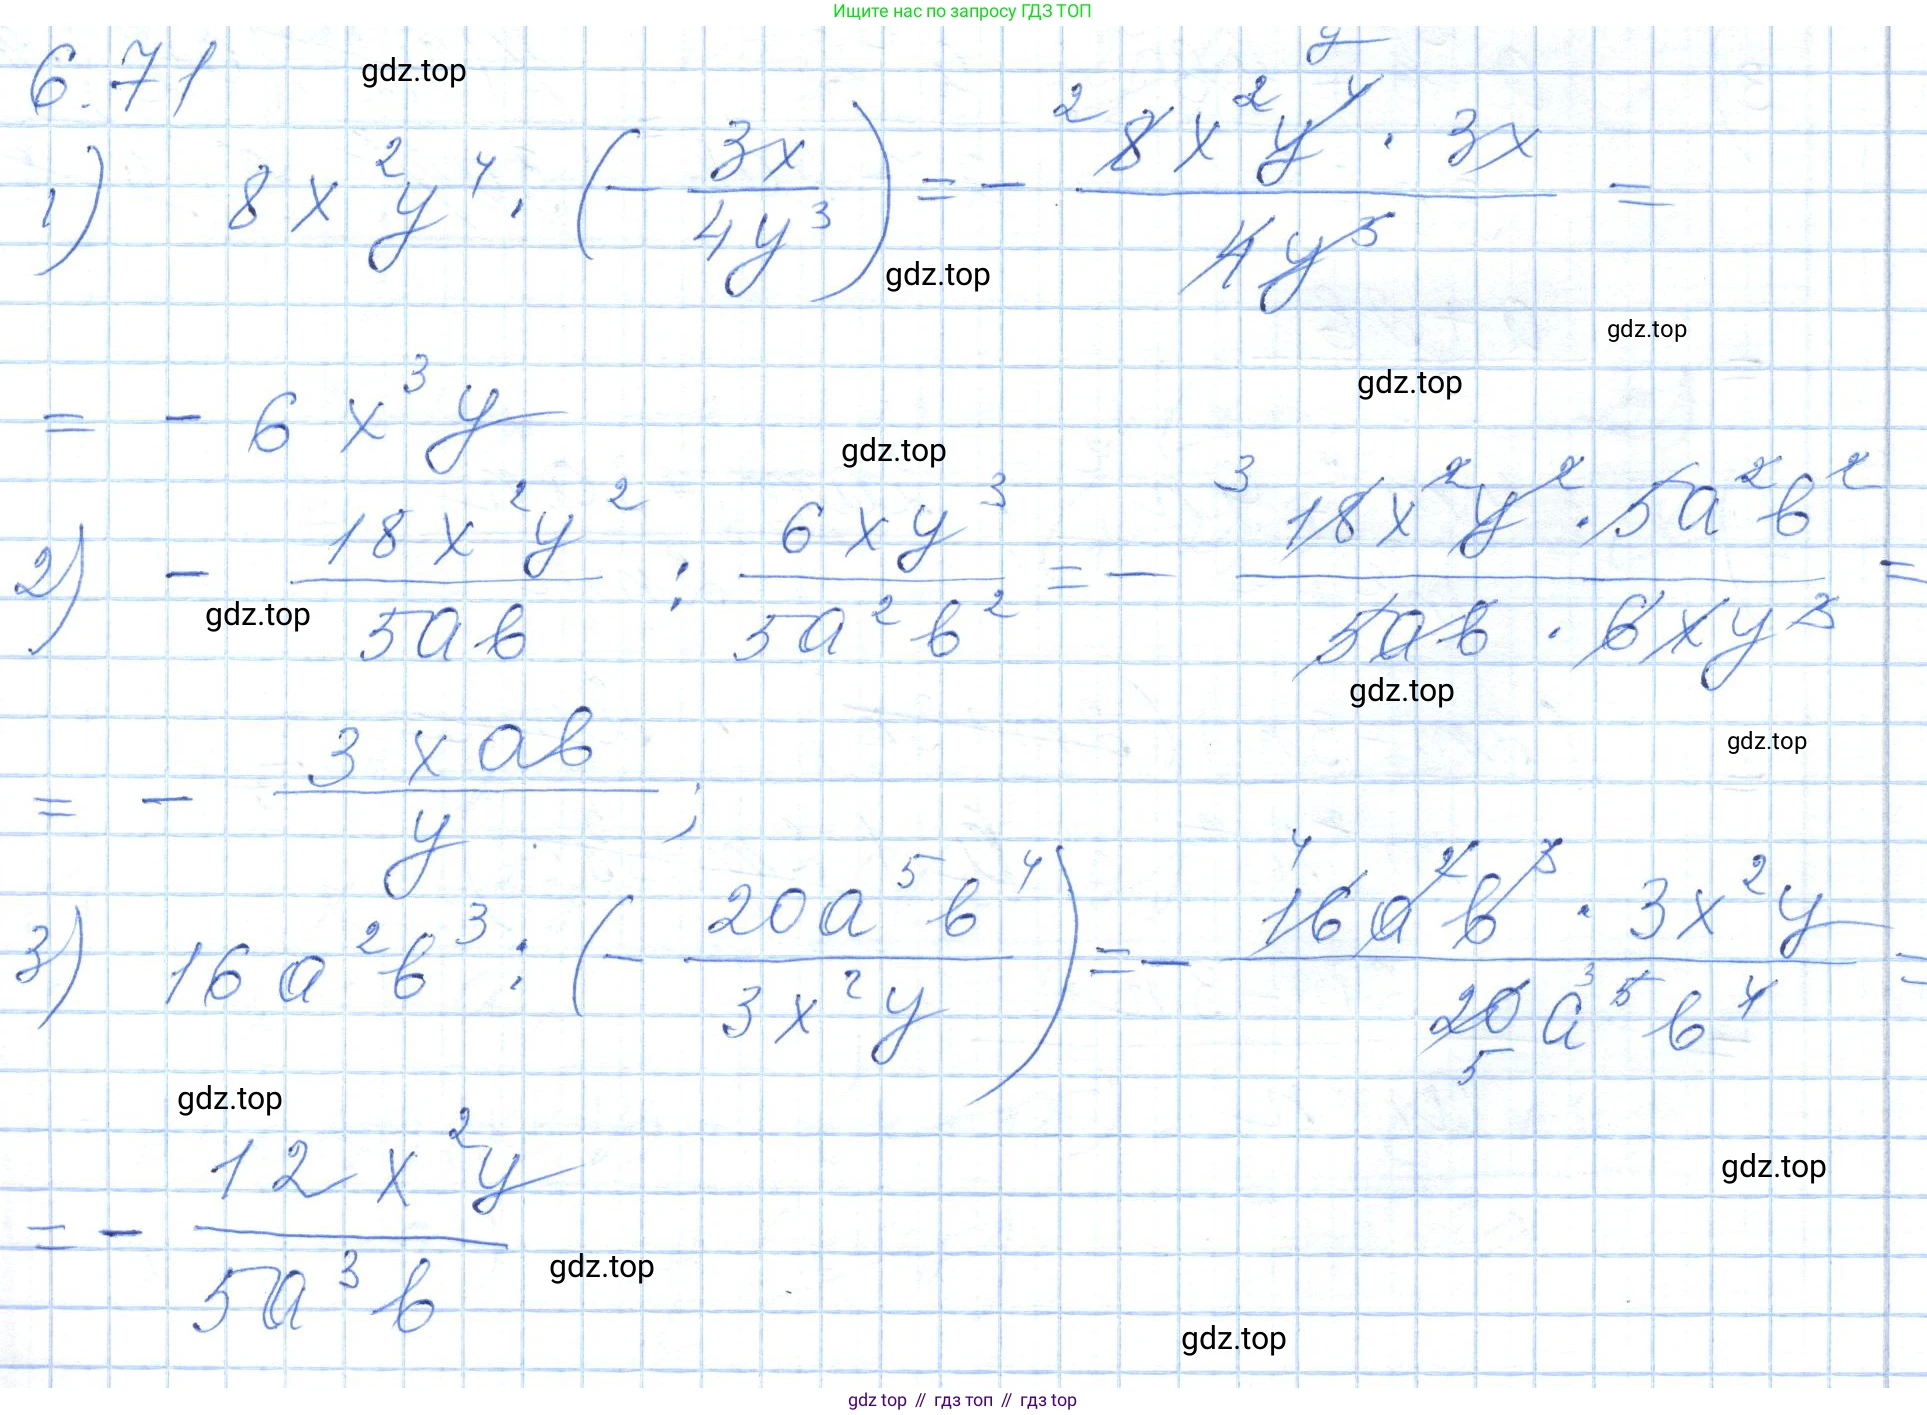 Ищите нас по запросу ГДЗ ТОП
6.71
gdz.top
1) 8x²y⁴ · (− 3x/4y³) = − ² 8x²y⁴ ʸ · 3x / 4y³ =
gdz.top
gdz.top
gdz.top
= − 6x³y
gdz.top
2) − 18x²y²/5ab : 6xy³/5a²b² = − ³ 18x²y² · 5a²b² / 5ab · 6xy³ =
gdz.top
gdz.top
gdz.top
= − 3xab/y ;
3) 16a²b³ : (− 20a⁵b⁴/3x²y) = − ⁴ 16a²b³ · 3x²y / 20 ₅ a³ ⁵b⁴ =
gdz.top
gdz.top
= − 12x²y/5a³b
gdz.top
gdz.top
gdz top // гдз топ // гдз top